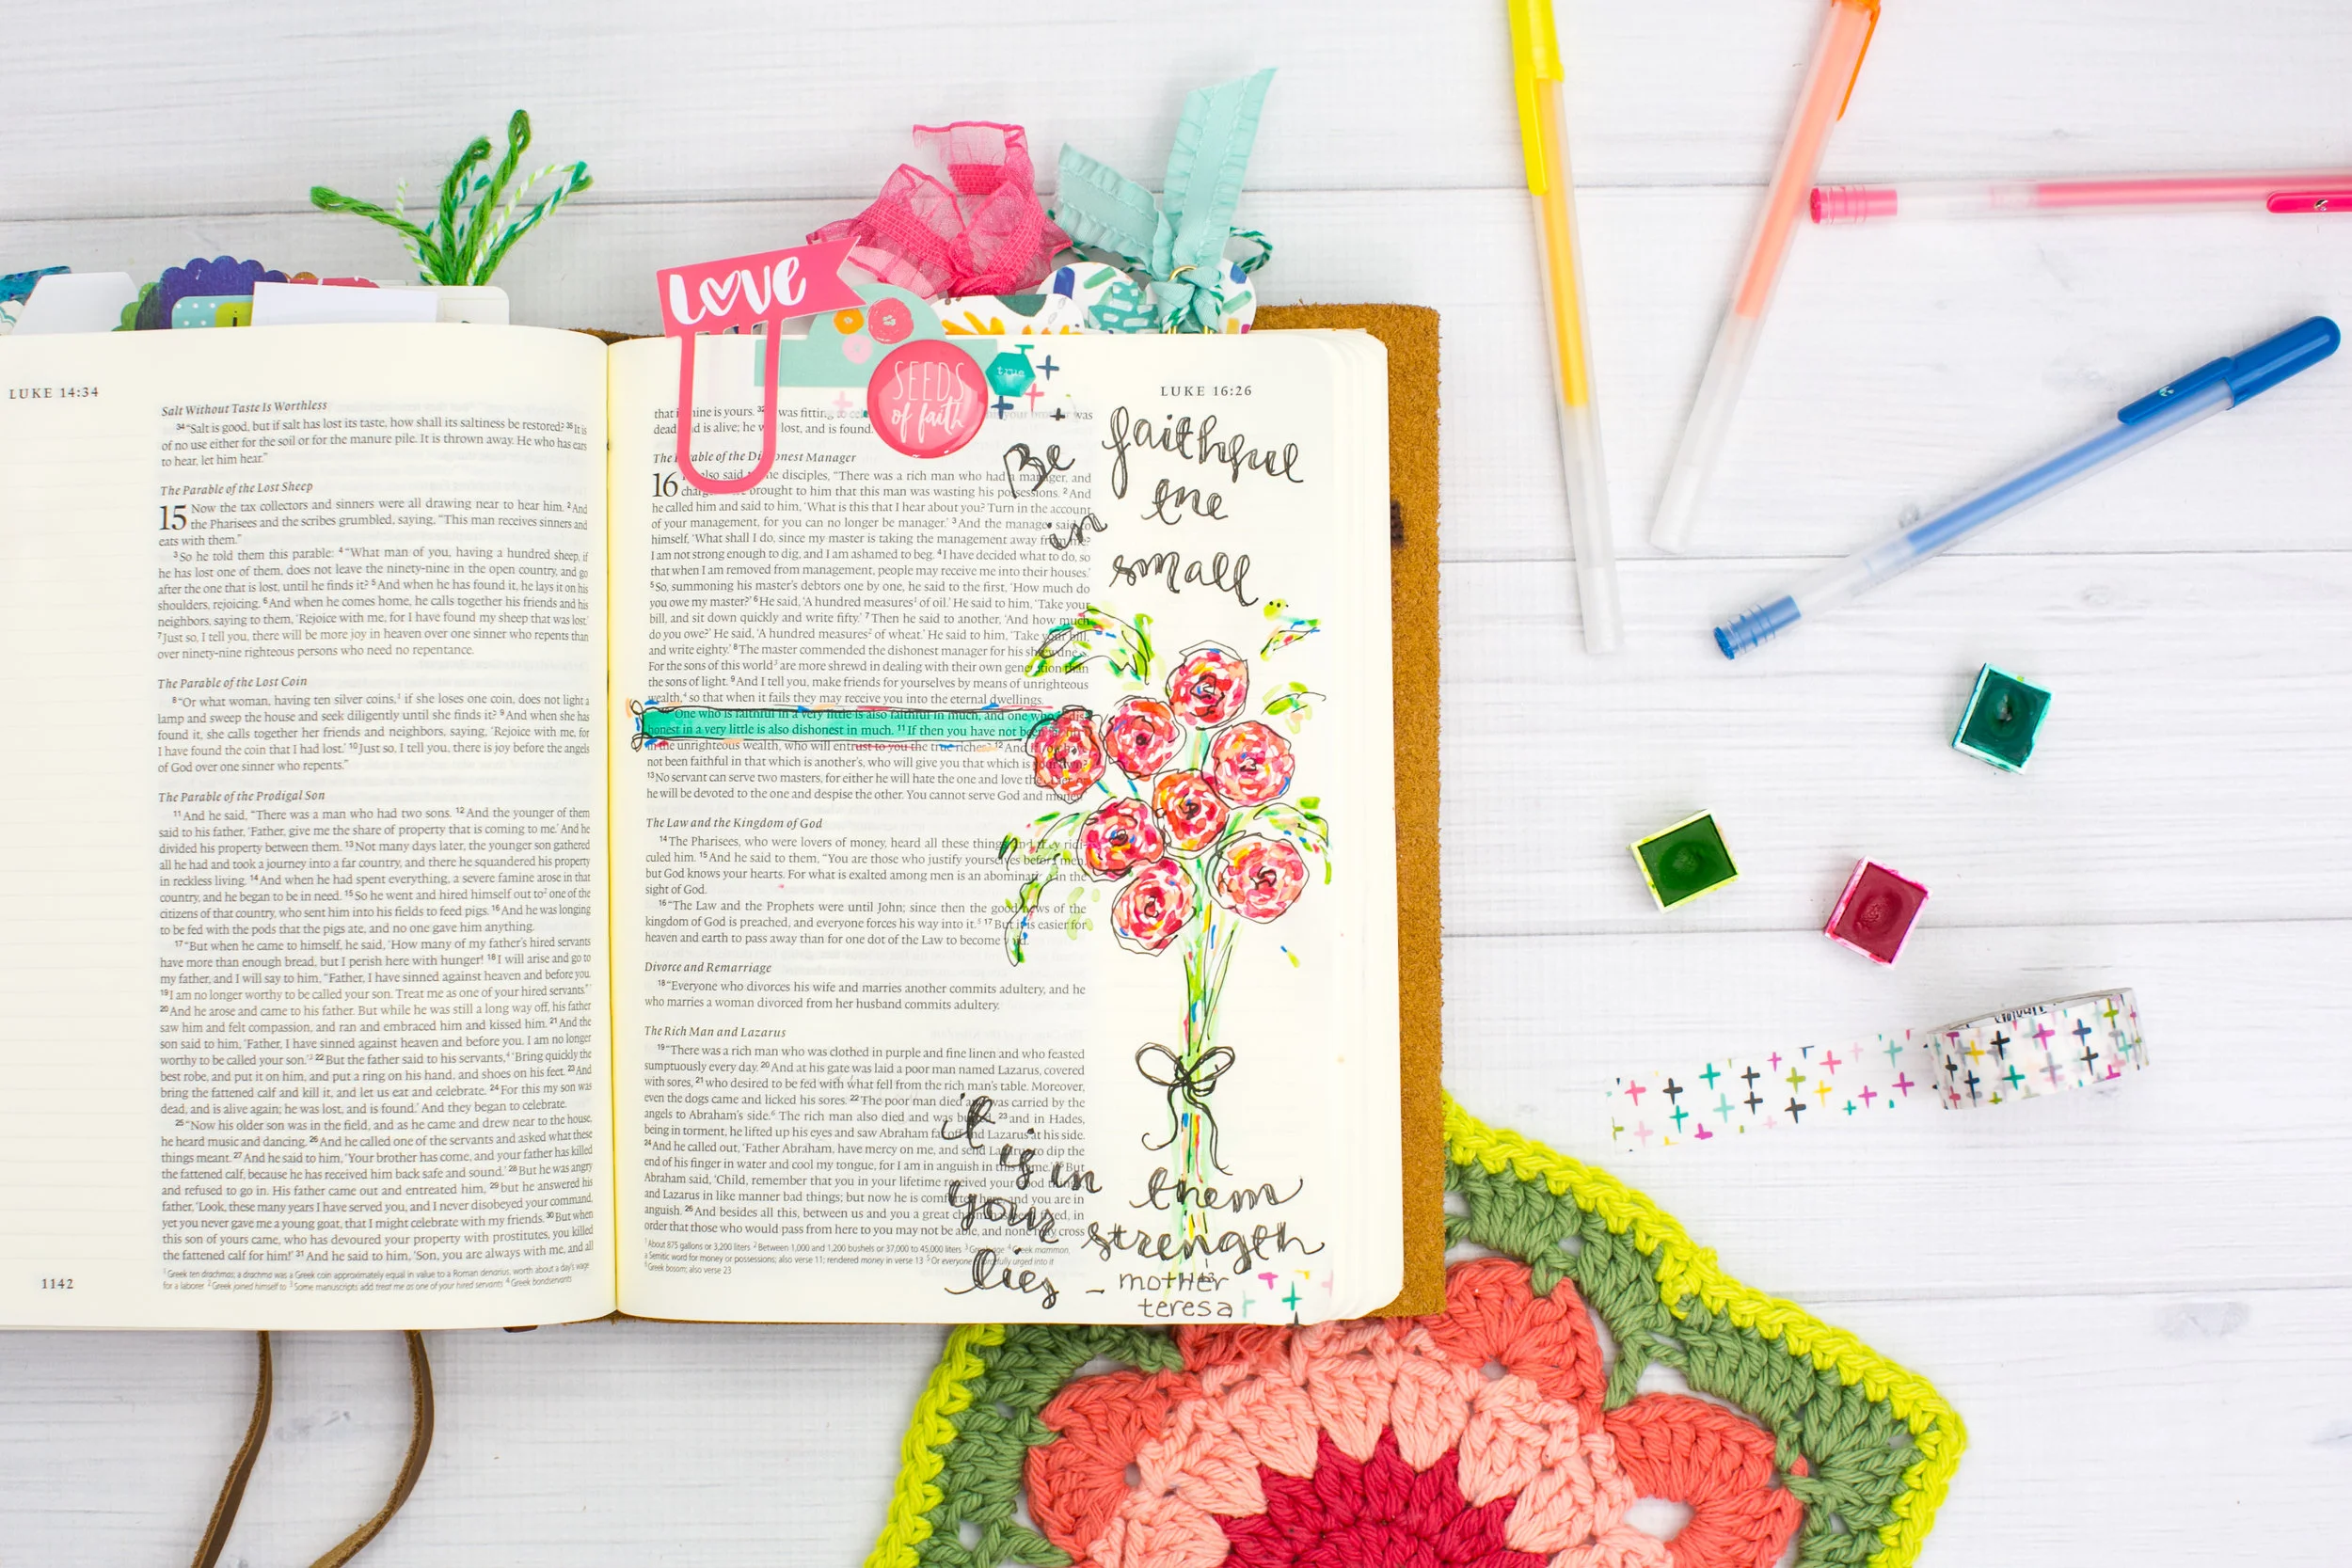 LOVE
SEEDS
of faith
true
LUKE 14:34
Salt Without Taste Is Worthless
34 “Salt is good, but if salt has lost its taste, how shall its saltiness be restored? 35 It is
of no use either for the soil or for the manure pile. It is thrown away. He who has ears
to hear, let him hear.”
The Parable of the Lost Sheep
15 Now the tax collectors and sinners were all drawing near to hear him. 2 And
the Pharisees and the scribes grumbled, saying, “This man receives sinners and
eats with them.”
3 So he told them this parable: 4 “What man of you, having a hundred sheep, if
he has lost one of them, does not leave the ninety-nine in the open country, and go
after the one that is lost, until he finds it? 5 And when he has found it, he lays it on his
shoulders, rejoicing. 6 And when he comes home, he calls together his friends and his
neighbors, saying to them, ‘Rejoice with me, for I have found my sheep that was lost.’
7 Just so, I tell you, there will be more joy in heaven over one sinner who repents than
over ninety-nine righteous persons who need no repentance.
The Parable of the Lost Coin
8 “Or what woman, having ten silver coins,1 if she loses one coin, does not light a
lamp and sweep the house and seek diligently until she finds it? 9 And when she has
found it, she calls together her friends and neighbors, saying, ‘Rejoice with me, for
I have found the coin that I had lost.’ 10 Just so, I tell you, there is joy before the angels
of God over one sinner who repents.”
The Parable of the Prodigal Son
11 And he said, “There was a man who had two sons. 12 And the younger of them
said to his father, ‘Father, give me the share of property that is coming to me.’ And he
divided his property between them. 13 Not many days later, the younger son gathered
all he had and took a journey into a far country, and there he squandered his property
in reckless living. 14 And when he had spent everything, a severe famine arose in that
country, and he began to be in need. 15 So he went and hired himself out to2 one of the
citizens of that country, who sent him into his fields to feed pigs. 16 And he was longing
to be fed with the pods that the pigs ate, and no one gave him anything.
17 “But when he came to himself, he said, ‘How many of my father’s hired servants
have more than enough bread, but I perish here with hunger! 18 I will arise and go to
my father, and I will say to him, “Father, I have sinned against heaven and before you.
19 I am no longer worthy to be called your son. Treat me as one of your hired servants.”’
20 And he arose and came to his father. But while he was still a long way off, his father
saw him and felt compassion, and ran and embraced him and kissed him. 21 And the
son said to him, ‘Father, I have sinned against heaven and before you. I am no longer
worthy to be called your son.’3 22 But the father said to his servants,4 ‘Bring quickly the
best robe, and put it on him, and put a ring on his hand, and shoes on his feet. 23 And
bring the fattened calf and kill it, and let us eat and celebrate. 24 For this my son was
dead, and is alive again; he was lost, and is found.’ And they began to celebrate.
25 “Now his older son was in the field, and as he came and drew near to the house,
he heard music and dancing. 26 And he called one of the servants and asked what these
things meant. 27 And he said to him, ‘Your brother has come, and your father has killed
the fattened calf, because he has received him back safe and sound.’ 28 But he was angry
and refused to go in. His father came out and entreated him, 29 but he answered his
father, ‘Look, these many years I have served you, and I never disobeyed your command,
yet you never gave me a young goat, that I might celebrate with my friends. 30 But when
this son of yours came, who has devoured your property with prostitutes, you killed
the fattened calf for him!’ 31 And he said to him, ‘Son, you are always with me, and all
1 Greek ten drachmas; a drachma was a Greek coin approximately equal in value to a Roman denarius, worth about a day's wage
for a laborer 2 Greek joined himself to 3 Some manuscripts add treat me as one of your hired servants 4 Greek bondservants
1142
LUKE 16:26
that is mine is yours. 32 was fitting to was
dead and is alive; he was lost, and is found.
The Parable of the Dishonest Manager
16 also said to the disciples, “There was a rich man who had a manager, and
charges were brought to him that this man was wasting his possessions. 2 And
he called him and said to him, ‘What is this that I hear about you? Turn in the account
of your management, for you can no longer be manager.’ 3 And the manager said to
himself, ‘What shall I do, since my master is taking the management away from me?
I am not strong enough to dig, and I am ashamed to beg. 4 I have decided what to do, so
that when I am removed from management, people may receive me into their houses.’
5 So, summoning his master’s debtors one by one, he said to the first, ‘How much do
you owe my master?’ 6 He said, ‘A hundred measures1 of oil.’ He said to him, ‘Take your
bill, and sit down quickly and write fifty.’ 7 Then he said to another, ‘And how much
do you owe?’ He said, ‘A hundred measures2 of wheat.’ He said to him, ‘Take your bill,
and write eighty.’ 8 The master commended the dishonest manager for his shrewdness.
For the sons of this world3 are more shrewd in dealing with their own generation than
the sons of light. 9 And I tell you, make friends for yourselves by means of unrighteous
wealth,4 so that when it fails they may receive you into the eternal dwellings.
“One who is faithful in a very little is also faithful in much, and one who is dis-
honest in a very little is also dishonest in much. 11 If then you have not been
in the unrighteous wealth, who will entrust to you the true riches? 12 And if you have
not been faithful in that which is another’s, who will give you that which is your own?
13 No servant can serve two masters, for either he will hate the one and love the other, or
he will be devoted to the one and despise the other. You cannot serve God and money.
The Law and the Kingdom of God
14 The Pharisees, who were lovers of money, heard all these things, and they ridi-
culed him. 15 And he said to them, “You are those who justify yourselves before men,
but God knows your hearts. For what is exalted among men is an abomination in the
sight of God.
16 “The Law and the Prophets were until John; since then the good news of the
kingdom of God is preached, and everyone forces his way into it.5 17 But it is easier for
heaven and earth to pass away than for one dot of the Law to become void.
Divorce and Remarriage
18 “Everyone who divorces his wife and marries another commits adultery, and he
who marries a woman divorced from her husband commits adultery.
The Rich Man and Lazarus
19 “There was a rich man who was clothed in purple and fine linen and who feasted
sumptuously every day. 20 And at his gate was laid a poor man named Lazarus, covered
with sores, 21 who desired to be fed with what fell from the rich man’s table. Moreover,
even the dogs came and licked his sores. 22 The poor man died and was carried by the
angels to Abraham’s side.6 The rich man also died and was buried, 23 and in Hades,
being in torment, he lifted up his eyes and saw Abraham far off and Lazarus at his side.
24 And he called out, ‘Father Abraham, have mercy on me, and send Lazarus to dip the
end of his finger in water and cool my tongue, for I am in anguish in this flame.’ 25 But
Abraham said, ‘Child, remember that you in your lifetime received your good things,
and Lazarus in like manner bad things; but now he is comforted here, and you are in
anguish. 26 And besides all this, between us and you a great chasm has been fixed, in
order that those who would pass from here to you may not be able, and none may cross
1 About 875 gallons or 3,200 liters 2 Between 1,000 and 1,200 bushels or 37,000 to 45,000 liters 3 Greek age 4 Greek mammon,
a Semitic word for money or possessions; also verse 11; rendered money in verse 13 5 Or everyone is forcefully urged into it
6 Greek bosom; also verse 23
Be faithful
in the
small
it
is in them
your strength
lies - mother
teresa